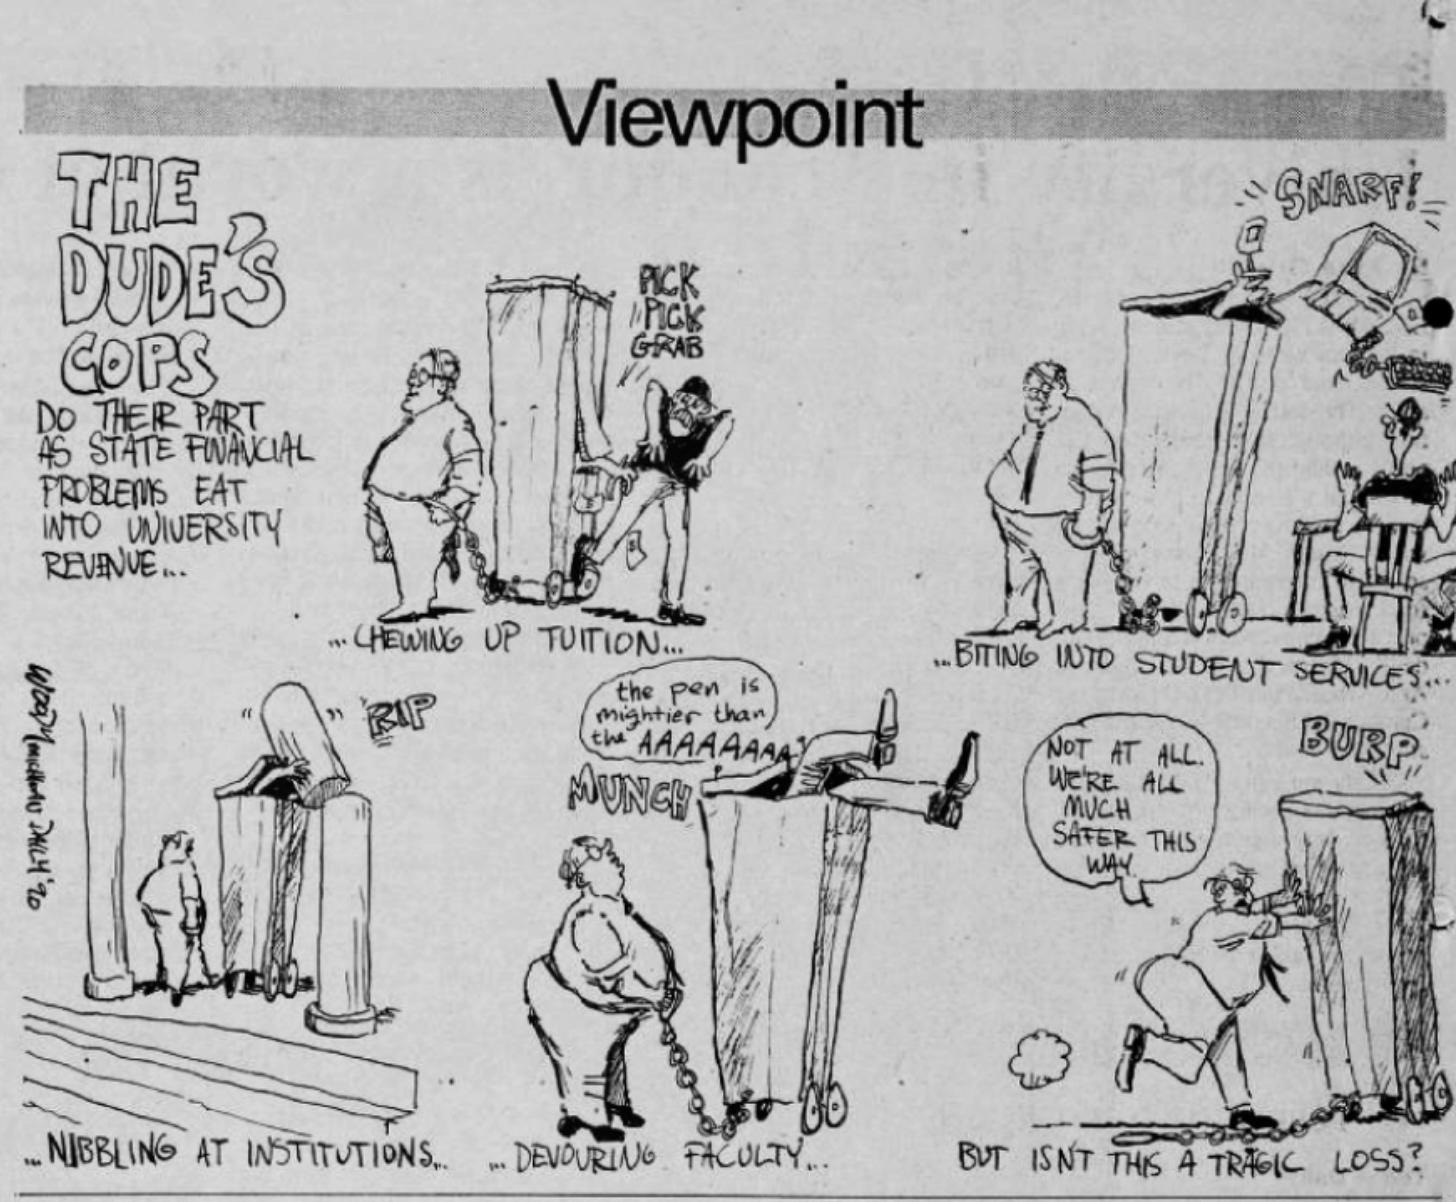 Viewpoint
THE
DUDE'S
COPS
DO THEIR PART
AS STATE FINANCIAL
PROBLEMS EAT
INTO UNIVERSITY
REVENUE...
PICK
PICK
GRAB
...CHEWING UP TUITION...
SNARF!
...BITING INTO STUDENT SERVICES...
RIP
...NIBBLING AT INSTITUTIONS...
the pen is
mightier than
the AAAAAAAA
MUNCH
...DEVOURING FACULTY...
NOT AT ALL.
WE'RE ALL
MUCH
SAFER THIS
WAY.
BURP
BUT ISN'T THIS A TRAGIC LOSS?
DAILY '90